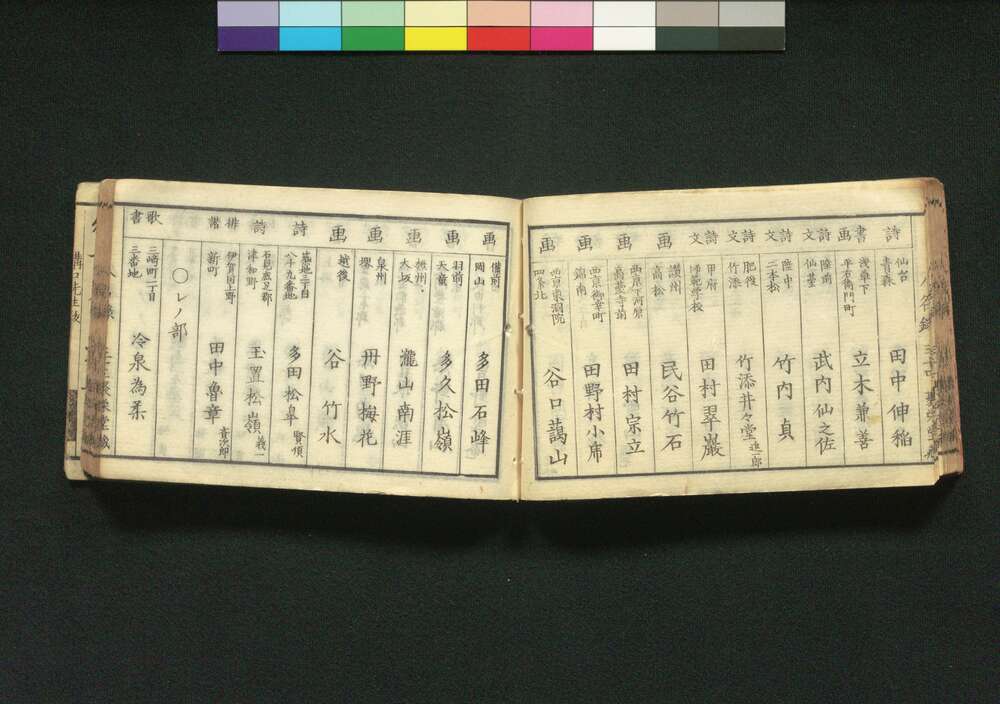 詩 仙台 青森 田中伸稲
書画 浅草下 平右衛門町 立木兼善
詩文 陸前 仙䑓 武内仙之佐
詩文 陸中 二本松 竹内貞
詩文 肥後 竹添 竹添井々堂 進一郎
詩文 甲府 師範学校 田村翠巌
画 讃州 高松 民谷竹石
画 田村宗立
画 西京御幸町 錦南 田野村小席
画 西京東洞院 四条北 谷口藹山
画 備前 岡山 多田石峰
画 羽前 天童 多久松嶺
画 摂州 大坂 瀧山南涯
画 泉州 堺 丹野梅花
画 越後 谷竹水
詩 築地三丁目 八十九番地 多田松皐 賢順
詩 津和野 玉置松嶺 義一
俳諧 伊賀国上野 新町 田中魯章
〇レノ部
歌書 三崎町一丁目 三番地 冷泉為柔